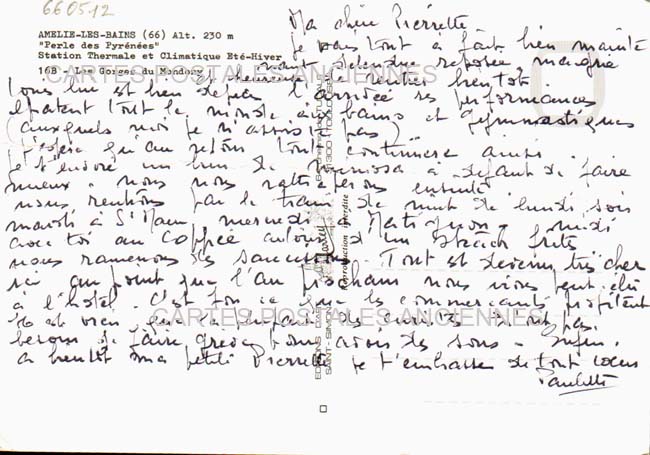 660512
AMELIE-LES-BAINS (66) Alt. 230 m
"Perle des Pyrénées"
Station Thermale et Climatique Eté-Hiver
168 - Les Gorges du Mondony
Ma chère Pierrette
je vais tout à fait bien mainte
nant détendue reposée, maigrie
et heureuse de rentrer bientôt.
tous est bien depuis l'arrivée ses performances
épatent tout le monde aux bains et gymnastiques
(auxquels moi je n'assiste pas)
j'espère qu'au retour tout continuera ainsi.
je t'envoie un brin de mimosa à défaut de faire
mieux. nous nous rattraperons ensuite.
nous rentrons par le train de nuit de lundi soir
mardi à St Maur, mercredi Matignon - midi
avec toi au Coffee autour d'un Steack frites
nous ramenons des saucissons. Tout est devenu très cher
ici au point que l'an prochain nous irons peut-être
à l'hôtel. C'est fou ce que les commerçants profitent
est vrai que la plupart des curistes n'ont pas
besoin de faire grève pour avoir des sous - Enfin.
à bientôt ma petite Pierrette je t'embrasse de tout coeur
Paulette
CARTES POSTALES ANCIENNES
CARTES POSTALES ANCIENNES
Reproduction interdite